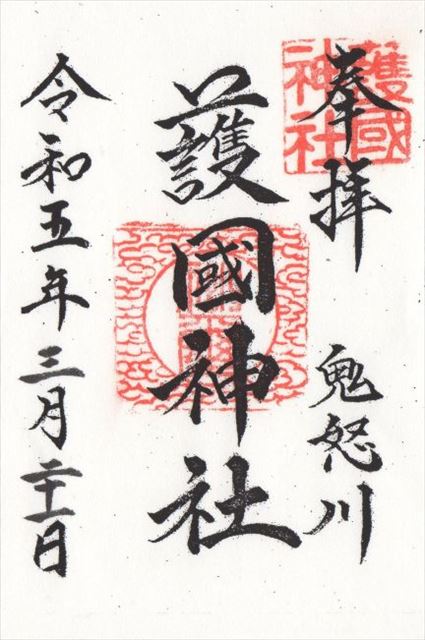 護國
神社
奉拝
鬼怒川
護國神社
令和五年三月二十一日